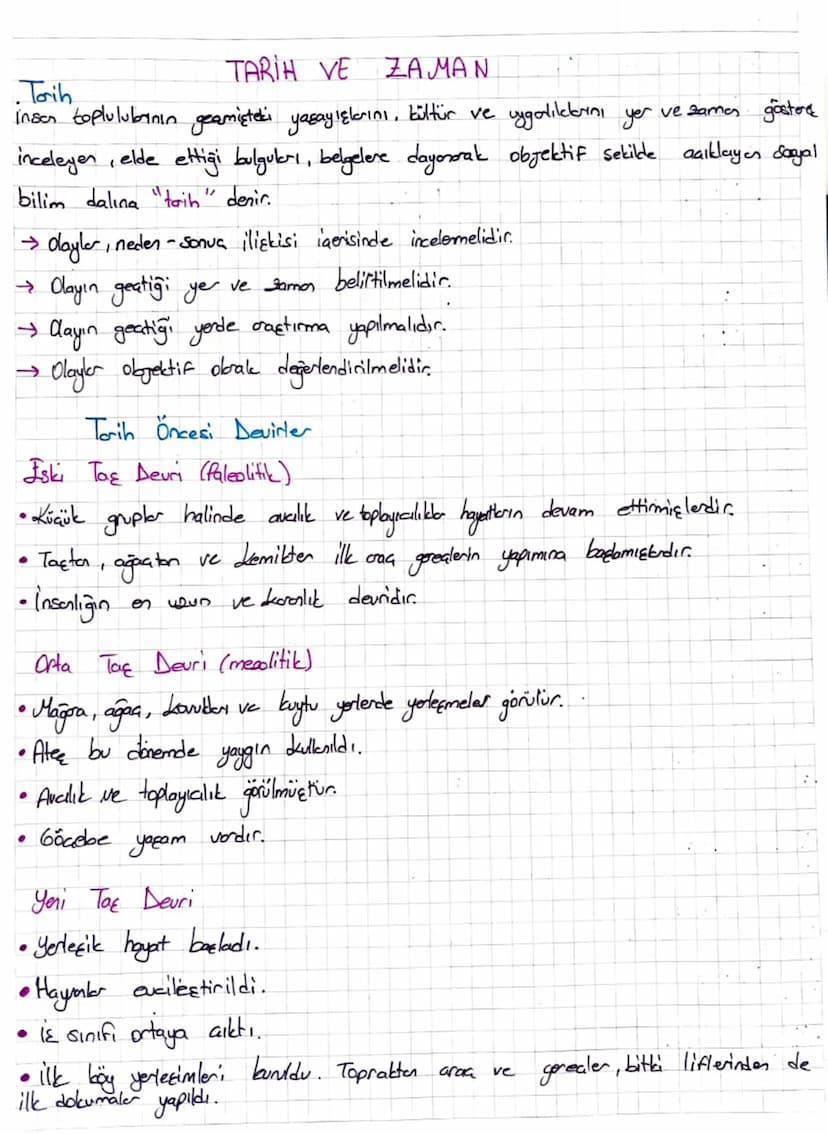 TARİH VE ZAMAN
. Tarih
insan topluluklarının geçmişteki yaşayışlarını, kültür ve uygarlıklarını yer ve zaman göstere
inceleyen, elde ettiği bulguları, belgelere dayanarak objektif şekilde açıklayan sosyal
bilim dalına "tarih" denir.
→ Olaylar, neden-sonuç ilişkisi içerisinde incelemelidir.
→ Olayın geçtiği yer ve zaman belirtilmelidir.
→ Olayın geçtiği yerde araştırma yapılmalıdır.
→ Olaylar objektif olarak değerlendirilmelidir.
Tarih Öncesi Devirler
Eski Taş Devri (Paleolitik)
• Küçük gruplar halinde avcılık ve toplayıcılıkla hayatların devam ettirmişlerdir.
• Taştan, ağaçtan ve kemikten ilk araç gereçlerin yapımına başlamışlardır.
• İnsanlığın en uzun ve karanlık devridir.
Orta Taş Devri (mezolitik)
• Mağara, ağaç, kovukları ve kuytu yerlerde yerleşmeler görülür.
• Ateş bu dönemde yaygın kullanıldı.
• Avcılık ve toplayıcılık görülmüştür.
• Göcebe yaşam vardır.
Yeni Taş Devri
• Yerleşik hayat başladı.
• Hayvanlar evcilleştirildi.
• iş sınıfı ortaya çıktı.
• ilk köy yerleşimleri kuruldu. Topraktan araç ve gereçler, bitki liflerinden de
ilk dokumalar yapıldı.